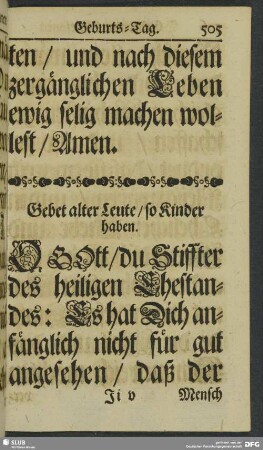 Geburts-Tag. 505
ten / und nach diesem
zergänglichen Leben
ewig selig machen wol-
lest / Amen.
Gebet alter Leute / so Kinder
haben.
O GOtt / du Stiffter
des heiligen Ehestan-
des: Es hat Dich an-
fänglich nicht für gut
angesehen / daß der
Ji v Mensch
SLUB
DFG